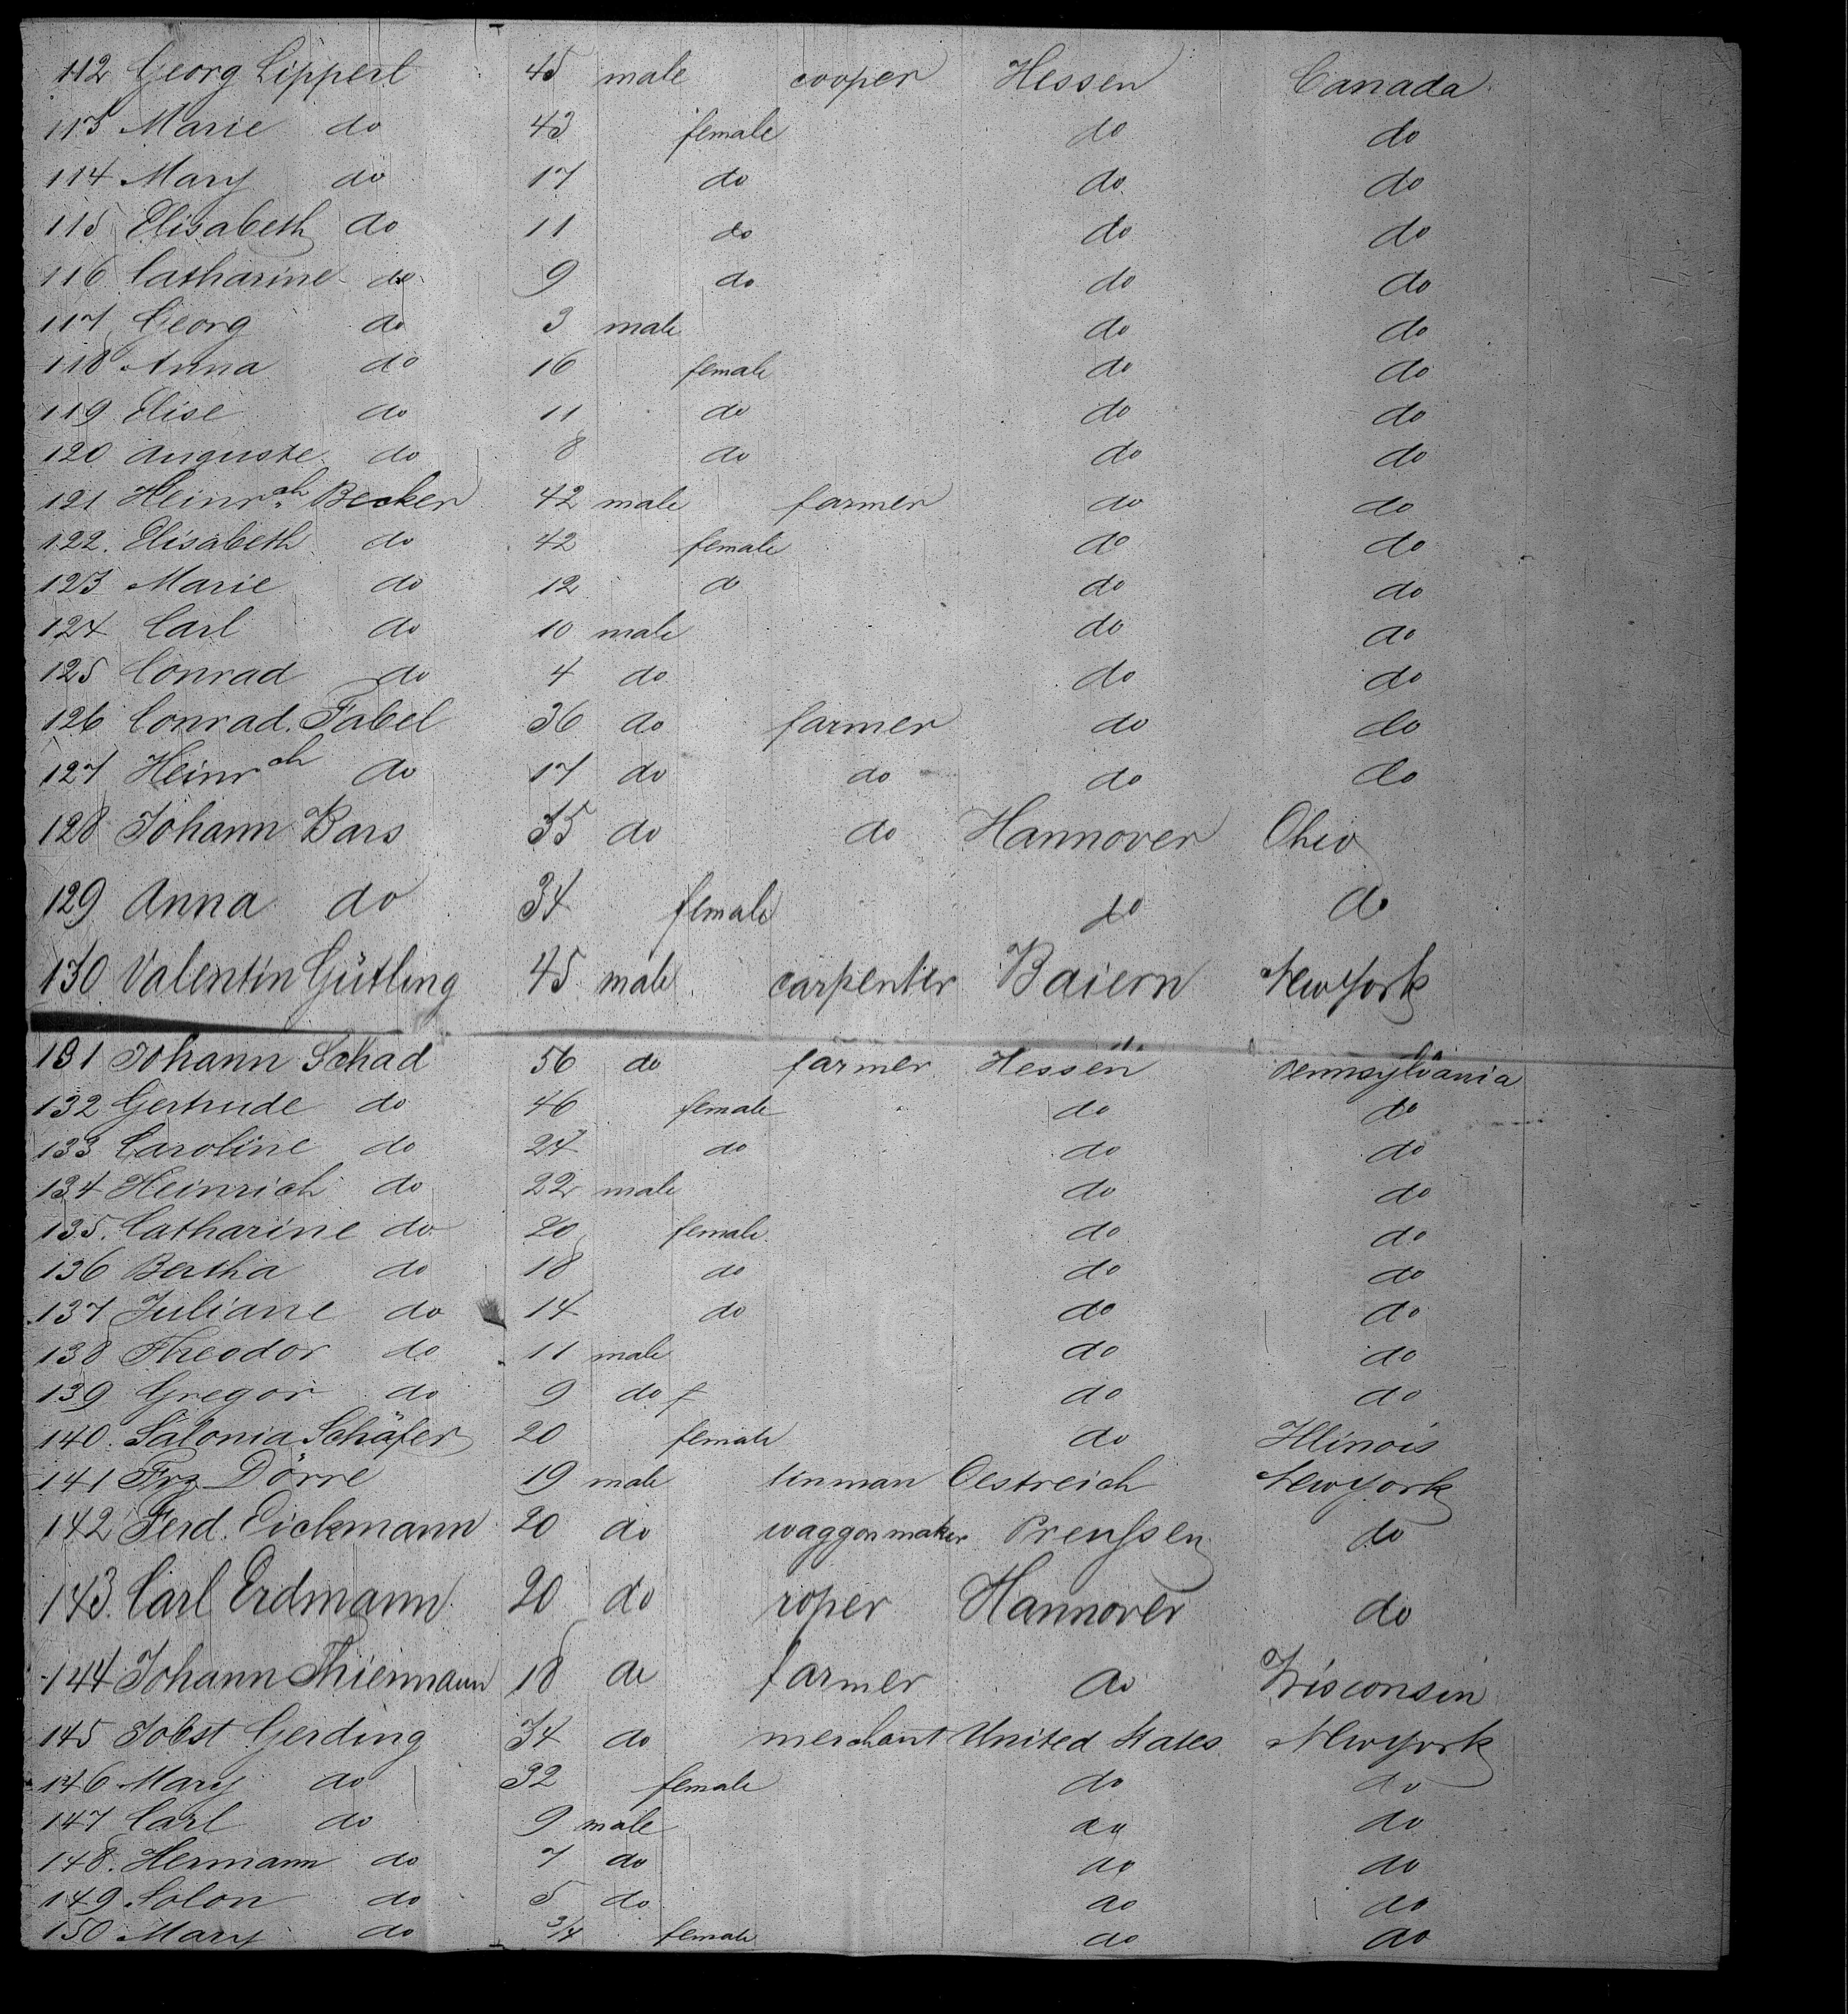 112 Georg Lippert 45 male cooper Hessen Canada
113 Marie do 43 female do do
114 Mary do 17 do do do
115 Elisabeth do 11 do do do
116 Catharine do 9 do do do
117 Georg do 3 male do do
118 Anna do 16 female do do
119 Elise do 11 do do do
120 Auguste do 8 do do do
121 Heinrch Becker 42 male farmer do do
122. Elisabeth do 42 female do do
123 Marie do 12 do do do
124 Carl do 10 male do do
125 Conrad do 4 do do do
126 Conrad Fabel 36 do farmer do do
127 Heinrch do 17 do do do do
128 Johann Bars 35 do do Hannover Ohio
129 Anna do 34 female do do
130 Valentin Gütling 45 male carpenter Baiern New York
131 Johann Schad 56 do farmer Hessen Pennsylvania
132 Gertrude do 46 female do do
133 Caroline do 24 do do do
134 Heinrich do 22 male do do
135. Catharine do 20 female do do
136 Bertha do 18 do do do
137 Juliane do 14 do do do
138 Theodor do 11 male do do
139 Gregor do 9 do do do
140. Salonia Schäfer 20 female do Illinois
141 Frz Dörre 19 male tinman Oestreich New York
142 Ferd. Eickmann 20 do waggon maker Preussen do
143. Carl Erdmann 20 do roper Hannover do
144 Johann Thiermann 18 do farmer do Wisconsin
145 Jobst Gerding 34 do merchant United States New York
146 Mary do 32 female do do
147 Carl do 9 male do do
148. Hermann do 7 do do do
149 Solon do 5 do do do
150 Mary do 3/4 female do do